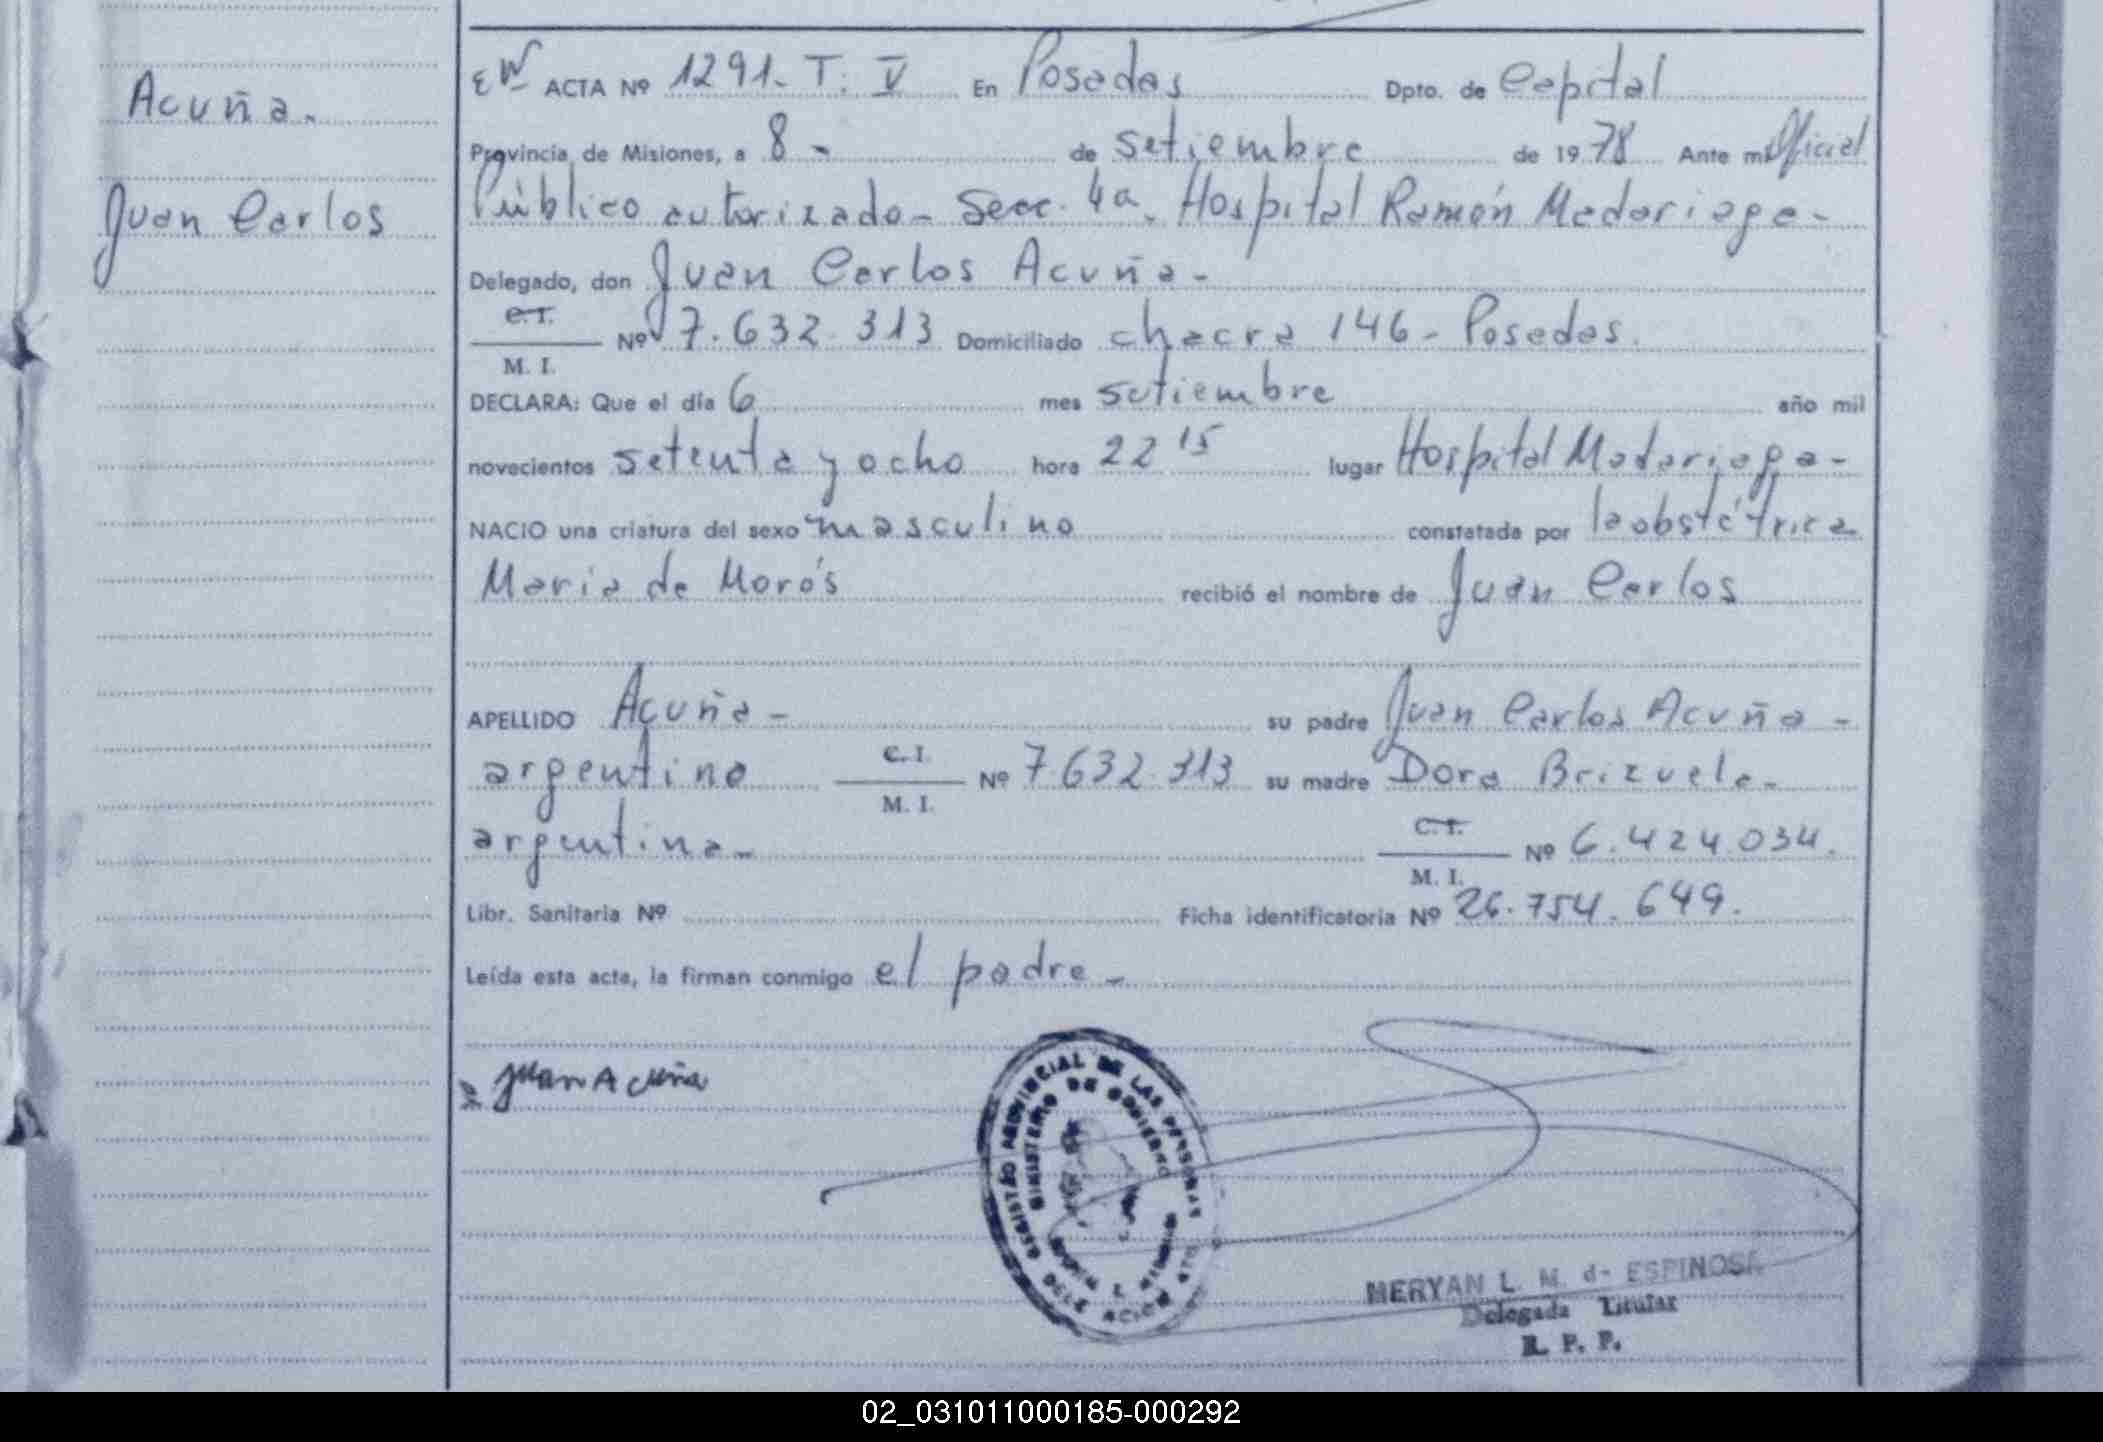 Acuña.
Juan Carlos
ACTA Nº 1291. T. V En Posadas Dpto. de Capital
Provincia de Misiones, a 8 - de setiembre de 1978 Ante mí Oficial
Público autorizado - Secc. 4a. Hospital Ramón Madariaga -
Delegado, don Juan Carlos Acuña -
C.I.
M. I. Nº 7.632.313 Domiciliado chacra 146 - Posadas.
DECLARA: Que el día 6 mes setiembre año mil
novecientos setenta y ocho hora 22 15 lugar Hospital Madariaga -
NACIO una criatura del sexo masculino constatada por la obstétrica
Maria de Morós recibió el nombre de Juan Carlos
APELLIDO Acuña - su padre Juan Carlos Acuña -
argentino C.I. M. I. Nº 7.632.313 su madre Dora Brizuela -
argentina - C.I. M. I. Nº 6.424.034.
Libr. Sanitaria Nº Ficha identificatoria Nº 26.754.649.
Leída esta acta, la firman conmigo el padre -
Juan Acuña
REGISTRO PROVINCIAL DE LAS PERSONAS
MINISTERIO DE GOBIERNO
MERYAN L. M. de ESPINOSA
Delegada Titular
R. P. P.
02_031011000185-000292